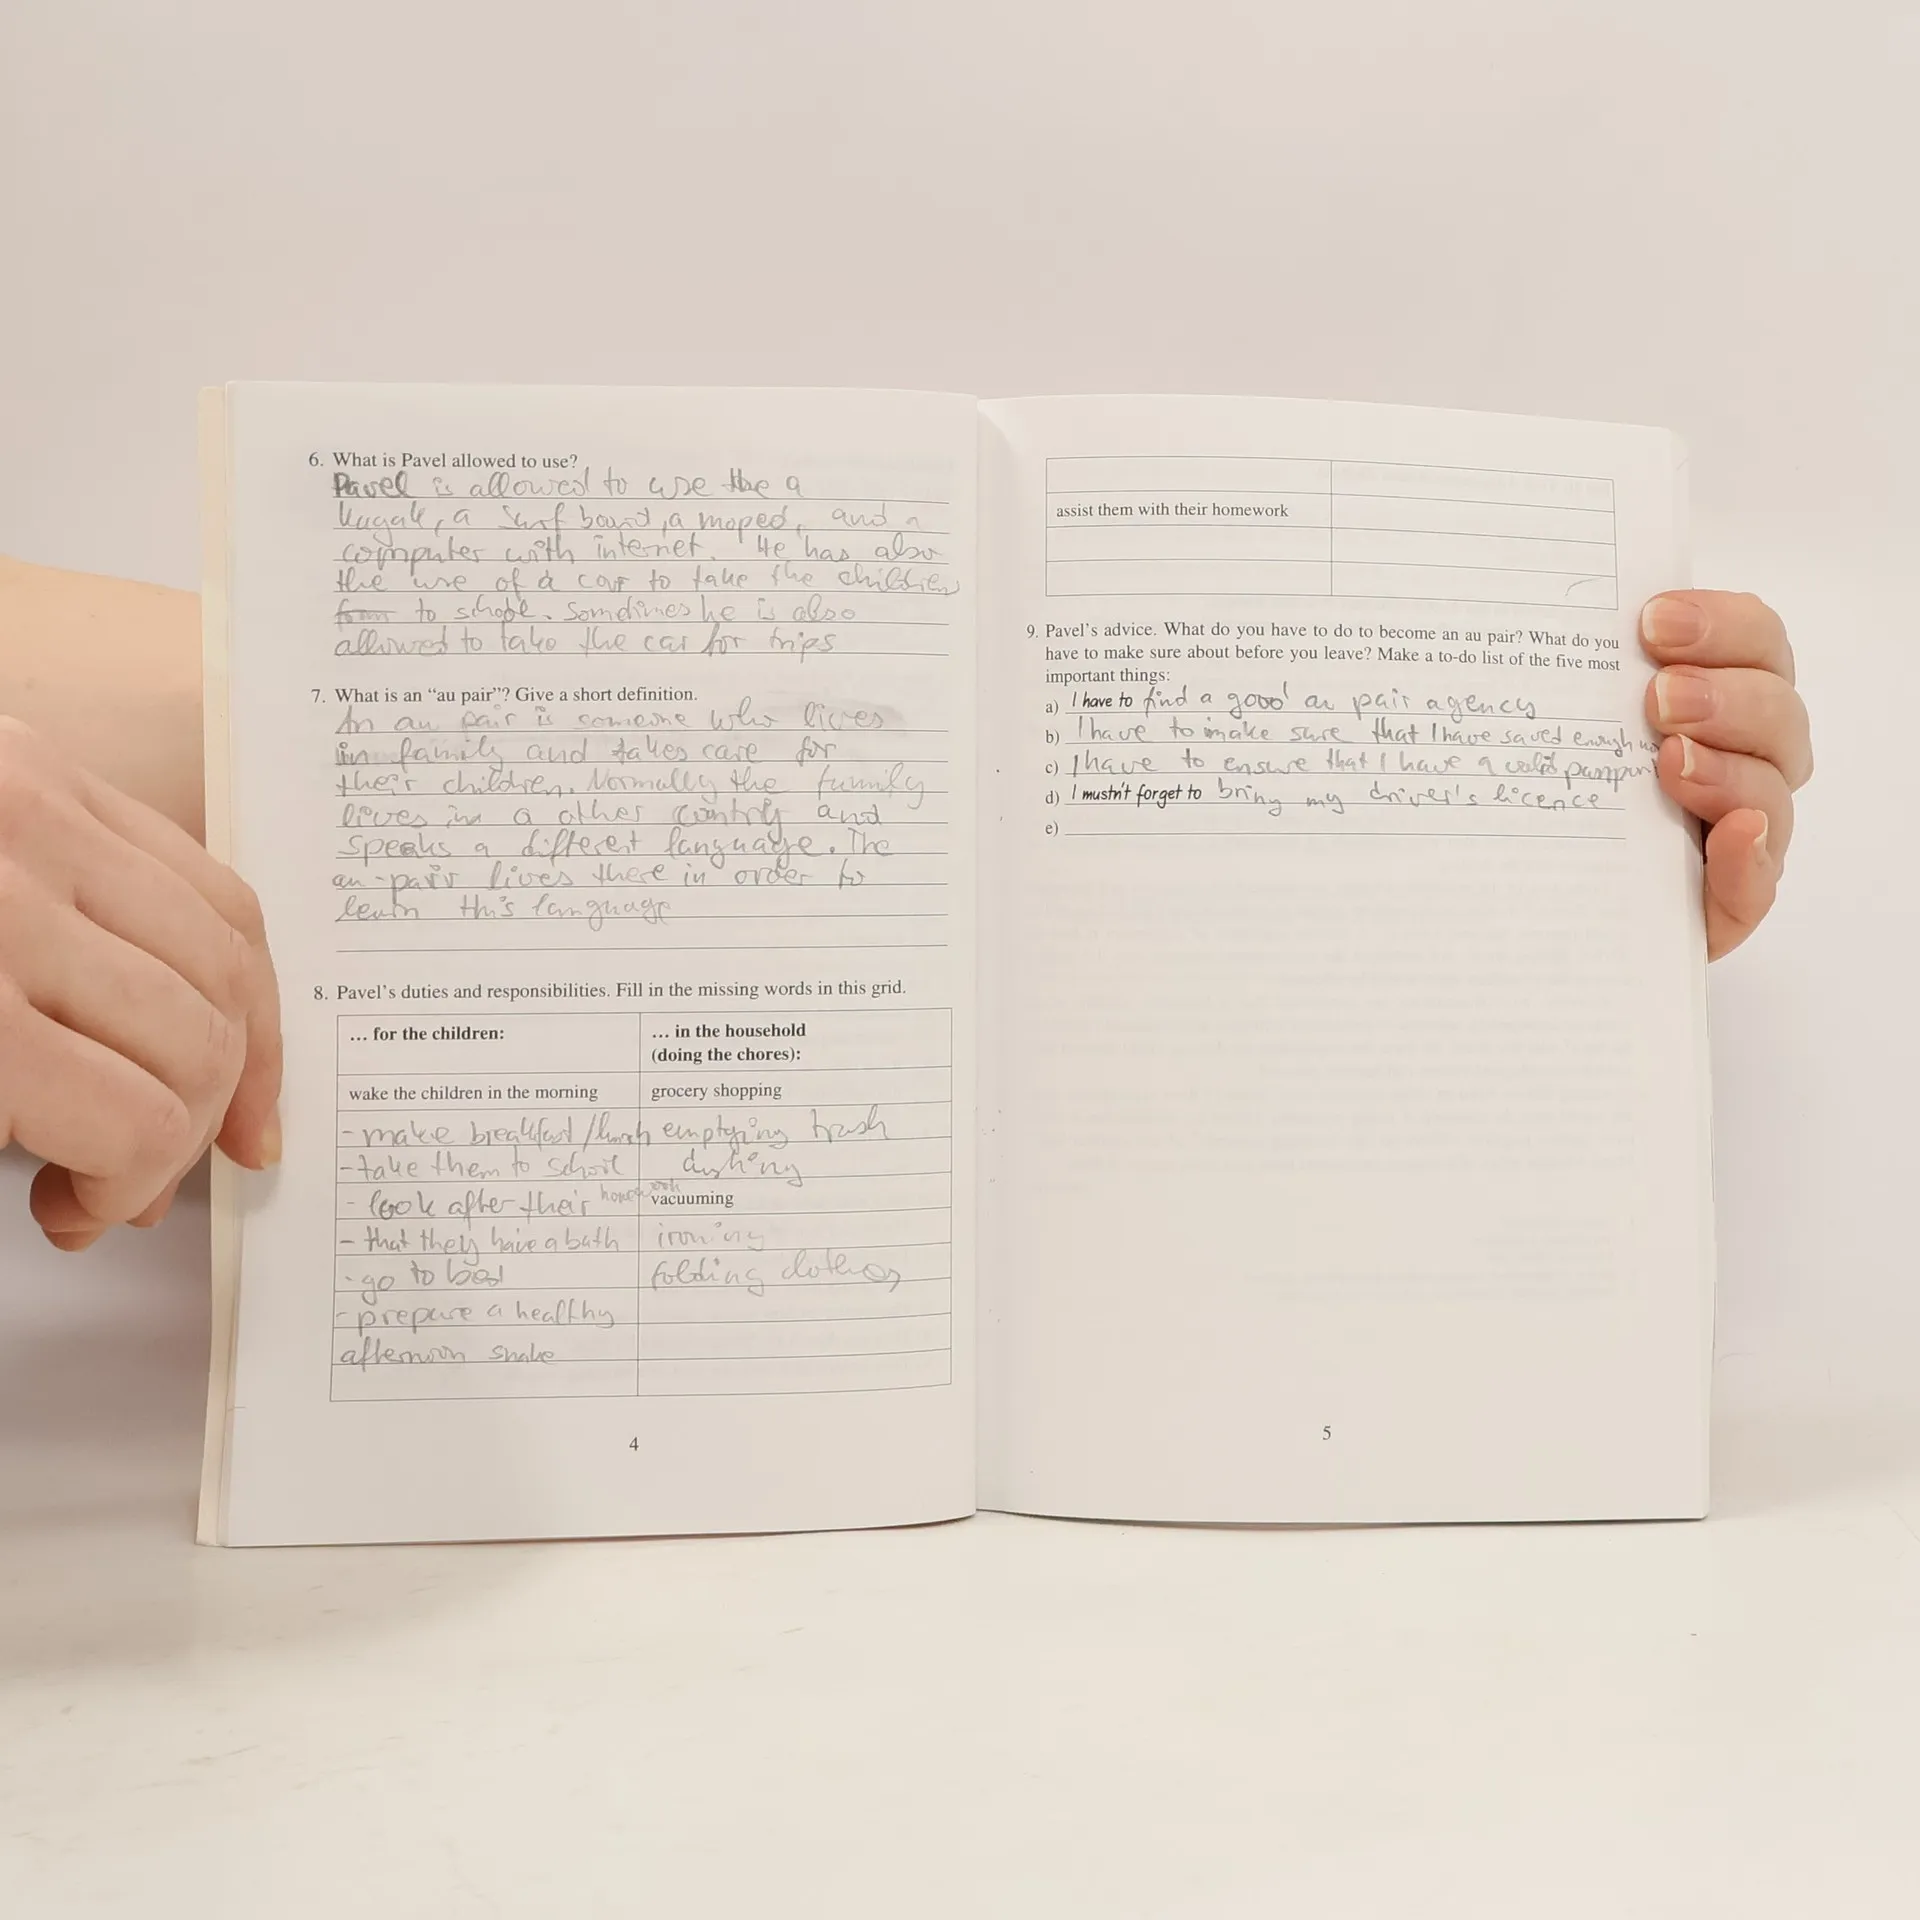 6. What is Pavel allowed to use?
Pavel is allowed to use the a
kayak, a surf board, a moped, and a
computer with internet. He has also
the use of a car to take the children
from to school. Sometimes he is also
allowed to take the car for trips
7. What is an “au pair”? Give a short definition.
An au pair is someone who lives
in family and takes care for
their children. Normally the family
lives in a other contry and
speaks a different language. The
au-pair lives there in order to
learn this language
8. Pavel’s duties and responsibilities. Fill in the missing words in this grid.
... for the children:
... in the household
(doing the chores):
wake the children in the morning
grocery shopping
- make breakfast/lunch
emptying trash
- take them to school
dishing
- look after their homework
vacuuming
- that they have a bath
ironing
- go to bed
folding clothes
- prepare a healthy
afternoon snake
4
assist them with their homework
9. Pavel’s advice. What do you have to do to become an au pair? What do you
have to make sure about before you leave? Make a to-do list of the five most
important things:
a) I have to find a good au pair agency
b) I have to make sure that I have saved enough
c) I have to ensure that I have a valid passport
d) I mustn't forget to bring my driver's licence
e)
5